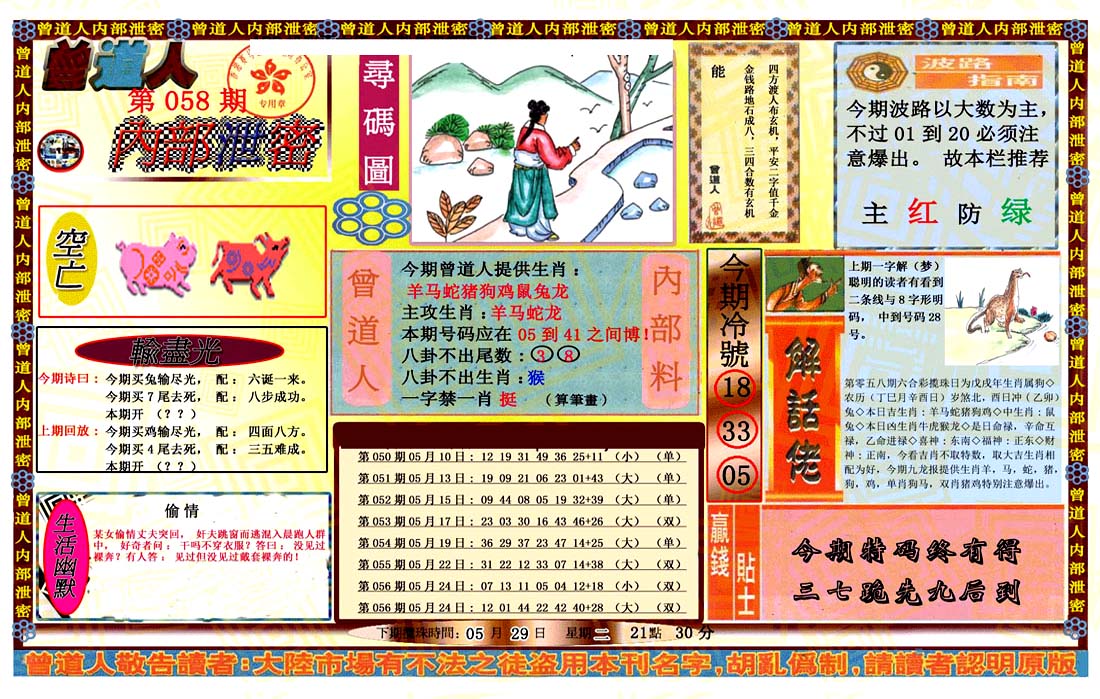 曾道人内部泄密 曾道人内部泄密 曾道人内部泄密 曾道人内部泄密 曾道人内部泄密 曾道人内部泄密 曾道人内部泄密
曾道人
第 058 期
专用章
内部泄密
尋碼圖
四方渡人布玄机，平安二字值千金
金钱路地石成八，三四合数有玄机
能
曾道人
波路
指南
今期波路以大数为主，
不过 01 到 20 必须注
意爆出。 故本栏推荐
主 红 防 绿
空亡
曾道人
内部料
今期曾道人提供生肖：
羊马蛇猪狗鸡鼠兔龙
主攻生肖：羊马蛇龙
本期号码应在 05 到 41 之间博！
八卦不出尾数：③ ⑧
八卦不出生肖：猴
一字禁一肖 挺 （算筆畫）
今期冷號
18
33
05
上期一字解（梦）
聪明的读者有看到
二条线与 8 字形明
码， 中到号码 28
号。
解話佬
第零五八期六合彩攪珠日为戊戌年生肖属狗◇
农历（丁巳月辛酉日）岁煞北，酉日冲（乙卯）
兔◇本日吉生肖：羊马蛇猪狗鸡◇中生肖：鼠
兔◇本日凶生肖牛虎猴龙◇是日命禄，辛命互
禄，乙命进禄◇喜神：东南◇福神：正东◇财
神：正南，今看吉肖不取特数，取大吉生肖相
配为好，今期九龙报提供生肖羊，马，蛇，猪，
狗，鸡，单肖狗马，双肖猪鸡特别注意爆出。
輸盡光
今期诗曰： 今期买兔输尽光， 配： 六诞一来。
今期买 7 尾去死， 配： 八步成功。
本期开 （？？）
上期回放： 今期买鸡输尽光， 配： 四面八方。
今期买 4 尾去死， 配： 三五难成。
本期开 （？？）
第 050 期 05 月 10 日： 12 19 31 49 36 25+11 （小） （单）
第 051 期 05 月 13 日： 19 09 21 06 23 01+43 （大） （单）
第 052 期 05 月 15 日： 09 44 08 05 19 32+39 （大） （单）
第 053 期 05 月 17 日： 23 03 30 16 43 46+26 （大） （双）
第 054 期 05 月 19 日： 36 29 37 23 47 14+25 （大） （单）
第 055 期 05 月 22 日： 31 22 12 33 07 14+38 （大） （双）
第 056 期 05 月 24 日： 07 13 11 05 04 12+18 （小） （双）
第 056 期 05 月 24 日： 12 01 44 22 42 40+28 （大） （双）
生活幽默
偷 情
某女偷情丈夫突回， 奸夫跳窗而逃混入晨跑人群
中， 好奇者问： 干吗不穿衣服？答曰： 没见过
裸奔？有人答： 见过但没见过戴套裸奔的！
贏錢
貼士
今期特码终有得
三七跪先九后到
下期攪珠時間：05 月 29 日 星期二 21點 30 分
曾道人敬告讀者：大陸市場有不法之徒盗用本刊名字，胡亂僞制，請讀者認明原版
曾道人内部泄密 曾道人内部泄密 曾道人内部泄密 曾道人内部泄密
曾道人内部泄密 曾道人内部泄密 曾道人内部泄密 曾道人内部泄密